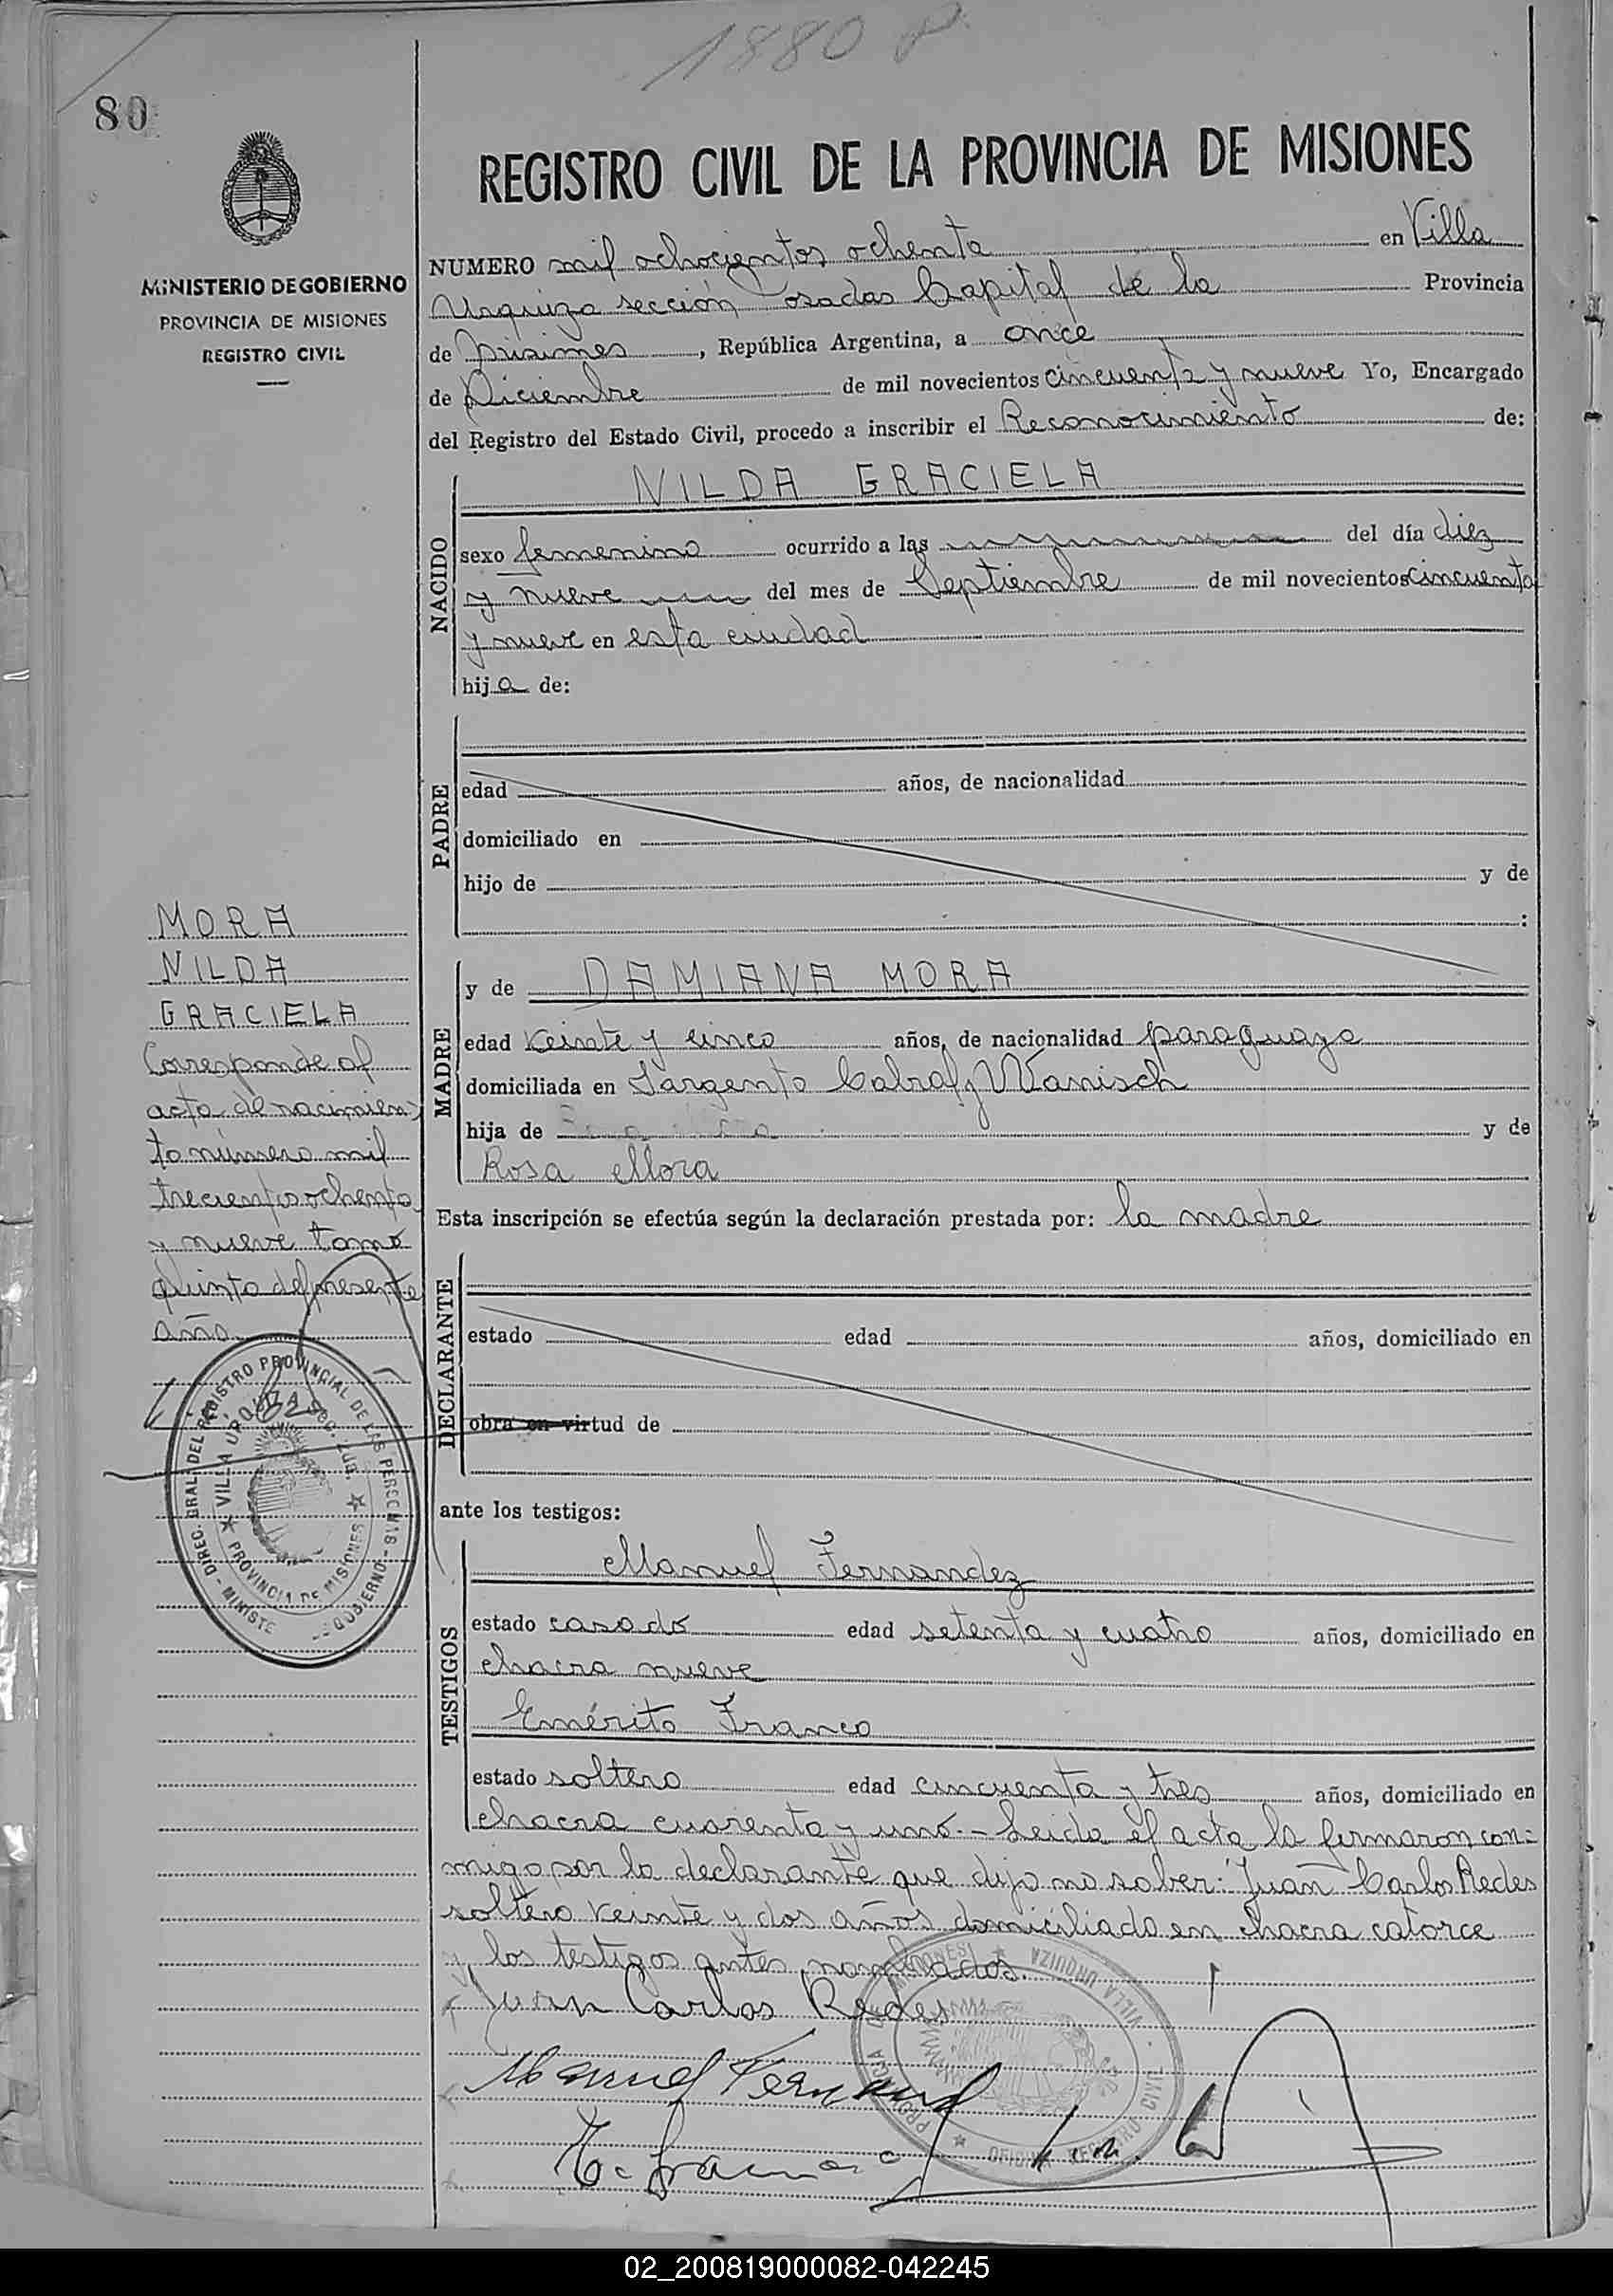 1880 P.
80
REGISTRO CIVIL DE LA PROVINCIA DE MISIONES
MINISTERIO DE GOBIERNO
PROVINCIA DE MISIONES
REGISTRO CIVIL
NUMERO mil ochocientos ochenta en Villa
Urquiza sección Posadas Capital de la Provincia
de Misiones, República Argentina, a once
de Diciembre de mil novecientos cincuenta y nueve Yo, Encargado
del Registro del Estado Civil, procedo a inscribir el Reconocimiento de:
NACIDO
NILDA GRACIELA
sexo femenino ocurrido a las del día diez
y nueve del mes de Septiembre de mil novecientos cincuenta
y nueve en esta ciudad
hija de:
PADRE
edad años, de nacionalidad
domiciliado en
hijo de y de
:
MORA
NILDA
GRACIELA
Corresponde al
acta de nacimien-
to número mil
trecientos ochenta
y nueve tomo
quinto del presente
año
MADRE
y de DAMIANA MORA
edad veinte y cinco años, de nacionalidad paraguaya
domiciliada en Sargento Cabral y Wanisch
hija de y de
Rosa Mora
Esta inscripción se efectúa según la declaración prestada por: la madre
DECLARANTE
estado edad años, domiciliado en
obra en virtud de
DIREC. GRAL. DEL REGISTRO PROVINCIAL DE LAS PERSONAS - MINISTE DE GOBIERNO
VILLA URQUIZA
PROVINCIA DE MISIONES
ante los testigos:
TESTIGOS
Manuel Fernandez
estado casado edad setenta y cuatro años, domiciliado en
chacra nueve
Emérito Franco
estado soltero edad cincuenta y tres años, domiciliado en
chacra cuarenta y uno.- Leida el acta, la firmaron con-
migo por la declarante que dijo no saber: Juan Carlos Redes
soltero veinte y dos años domiciliado en chacra catorce
y los testigos antes nombrados.
Juan Carlos Redes
Manuel Fernand
E. Franco
VILLA URQUIZA
OFICINA REGISTRO CIVIL
02_200819000082-042245